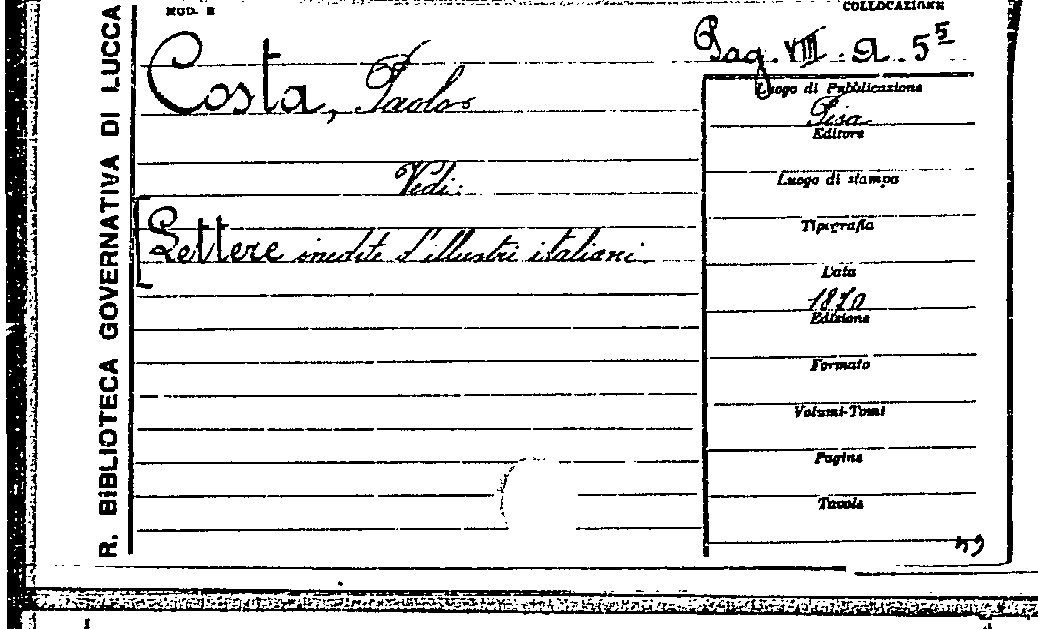 MOD. E
COLLOCAZIONE
R. BIBLIOTECA GOVERNATIVA DI LUCCA
Pag. VIII. a. 5⁵
Costa, Paolo
Vedi:
Lettere inedite d'illustri italiani.
Luogo di Pubblicazione
Pisa
Editore
Luogo di stampa
Tipografia
Data
1870
Edizione
Formato
Volumi-Tomi
Pagine
Tavole